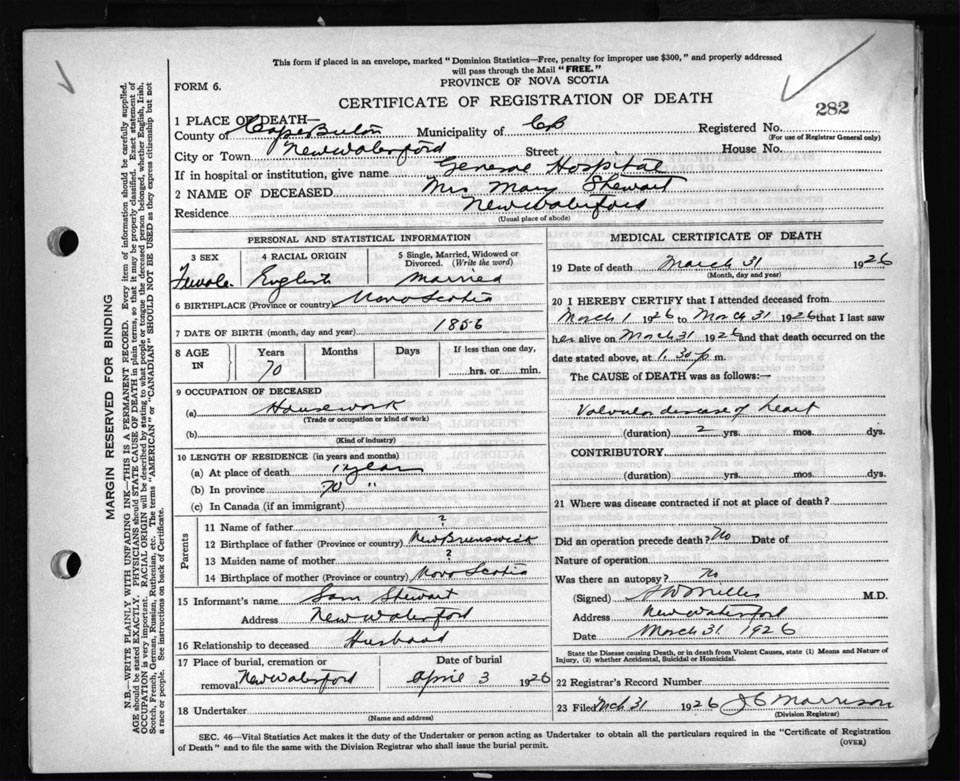 This form if placed in an envelope, marked "Dominion Statistics—Free, penalty for improper use $300," and properly addressed
will pass through the Mail "FREE."
FORM 6.
PROVINCE OF NOVA SCOTIA
CERTIFICATE OF REGISTRATION OF DEATH
282
1 PLACE OF DEATH—
County of Cape Breton Municipality of CB Registered No.
(For use of Registrar General only)
City or Town New Waterford Street House No.
If in hospital or institution, give name General Hospital
2 NAME OF DECEASED Mrs Mary Stewart
Residence New Waterford
(Usual place of abode)
PERSONAL AND STATISTICAL INFORMATION
3 SEX 4 RACIAL ORIGIN 5 Single, Married, Widowed or
Divorced. (Write the word)
Female English Married
6 BIRTHPLACE (Province or country) Nova Scotia
7 DATE OF BIRTH (month, day and year) 1856
8 AGE IN Years Months Days If less than one day,
70 hrs. or min.
9 OCCUPATION OF DECEASED
(a) Housework
(Trade or occupation or kind of work)
(b)
(Kind of industry)
10 LENGTH OF RESIDENCE (in years and months)
(a) At place of death 1 year
(b) In province 70 "
(c) In Canada (if an immigrant)
Parents
11 Name of father ?
12 Birthplace of father (Province or country) New Brunswick
13 Maiden name of mother ?
14 Birthplace of mother (Province or country) Nova Scotia
15 Informant's name Sam Stewart
Address New Waterford
16 Relationship to deceased Husband
17 Place of burial, cremation or Date of burial
removal New Waterford April 3 1926
18 Undertaker
(Name and address)
MEDICAL CERTIFICATE OF DEATH
19 Date of death March 31 1926
(Month, day and year)
20 I HEREBY CERTIFY that I attended deceased from
March 1 1926 to March 31 1926 that I last saw
her alive on March 31 1926 and that death occurred on the
date stated above, at 1.30 p m.
The CAUSE of DEATH was as follows:—
Valvular disease of heart
(duration) 2 yrs. mos. dys.
CONTRIBUTORY
(duration) yrs. mos. dys.
21 Where was disease contracted if not at place of death?
Did an operation precede death? No Date of
Nature of operation
Was there an autopsy? No
(Signed) M.D.
Address New Waterford
Date March 31 1926
State the Disease causing Death, or in death from Violent Causes, state (1) Means and Nature of
Injury, (2) whether Accidental, Suicidal or Homicidal.
22 Registrar's Record Number
23 Filed Mch 31 1926 J C Morrison
(Division Registrar)
SEC. 46—Vital Statistics Act makes it the duty of the Undertaker or person acting as Undertaker to obtain all the particulars required in the "Certificate of Registration
of Death" and to file the same with the Division Registrar who shall issue the burial permit.
(OVER)
MARGIN RESERVED FOR BINDING
N.B.—WRITE PLAINLY WITH UNFADING INK—THIS IS A PERMANENT RECORD. Every item of information should be carefully supplied.
AGE should be stated EXACTLY. PHYSICIANS should STATE CAUSE OF DEATH in plain terms, so that it may be properly classified. Exact statement of
OCCUPATION is very important. RACIAL ORIGIN will be described by stating to what people or tongue the deceased person belonged, whether English, Irish,
Scotch, French, German, Russian, Ruthenian, etc. The terms "AMERICAN" or "CANADIAN" SHOULD NOT BE USED as they express citizenship but not
a race or people. See instructions on back of Certificate.